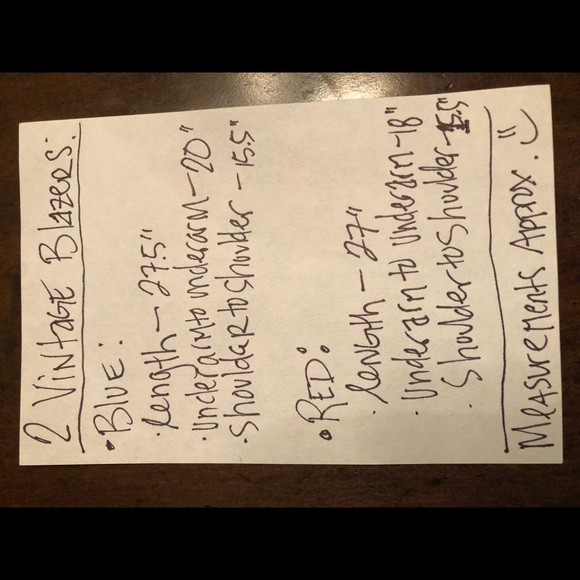 2 VINTAGE BLAZERS:
• BLUE:
• Length – 27.5"
• Underarm to underarm – 20"
• Shoulder to shoulder – 15.5"
• RED:
• Length – 27"
• Underarm to Underarm – 18"
• Shoulder to Shoulder – 15.5"
MEASUREMENTS APPROX. :)